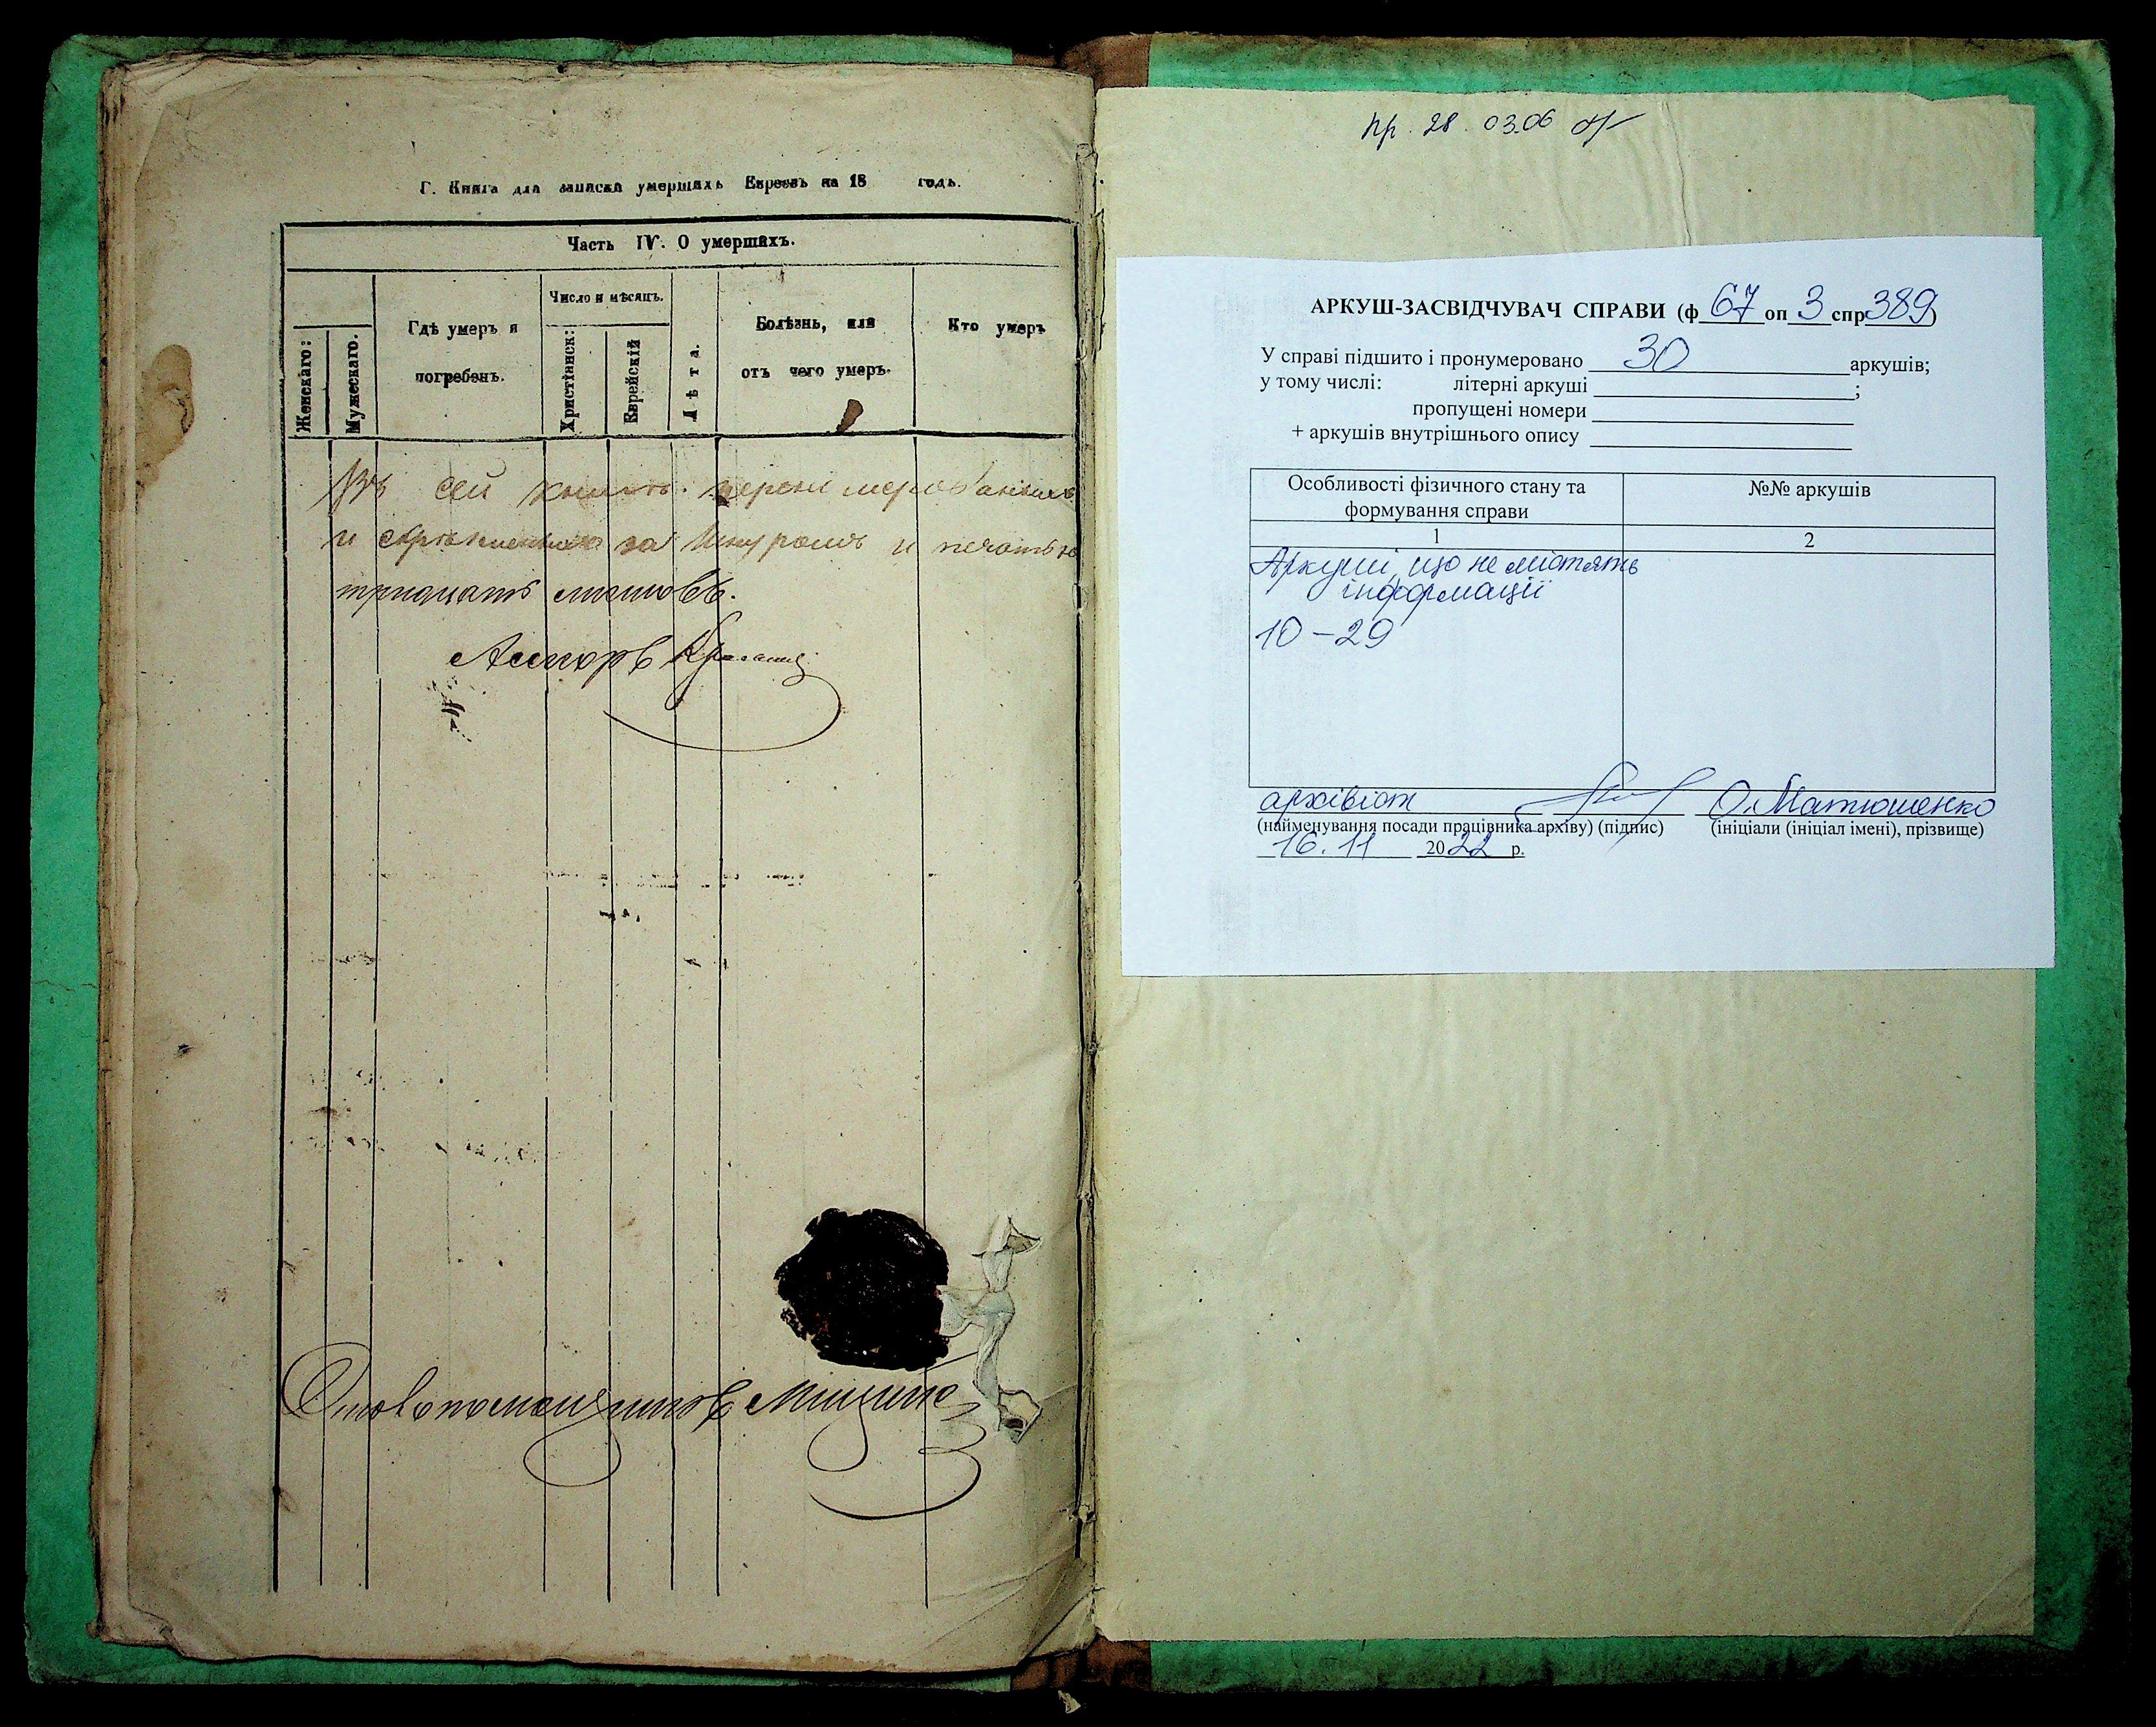 Г. Книга для записки умершихъ Евреевъ на 18 годъ.
Часть IV. О умершихъ.
Женскаго:
Мужескаго.
Гдѣ умеръ и
погребенъ.
Число и мѣсяцъ.
Христіянск:
Еврейскій
Лѣта.
Болѣзнь, или
отъ чего умеръ.
Кто умеръ
Въ сей книгѣ перенумерованныхъ
и скрѣпленныхъ за шнуромъ и печатью
тридцать листовъ.
Асессоръ
Столоначальникъ
пр. 28.03.06
АРКУШ-ЗАСВІДЧУВАЧ СПРАВИ (ф 67 оп 3 спр 389)
У справі підшито і пронумеровано 30 аркушів;
у тому числі: літерні аркуші ;
пропущені номери
+ аркушів внутрішнього опису
Особливості фізичного стану та
формування справи
№№ аркушів
1
2
Аркуші, що не містять
інформації
10-29
архівіст О.Матюшенко
(найменування посади працівника архіву) (підпис) (ініціали (ініціал імені), прізвище)
16.11 2022 р.